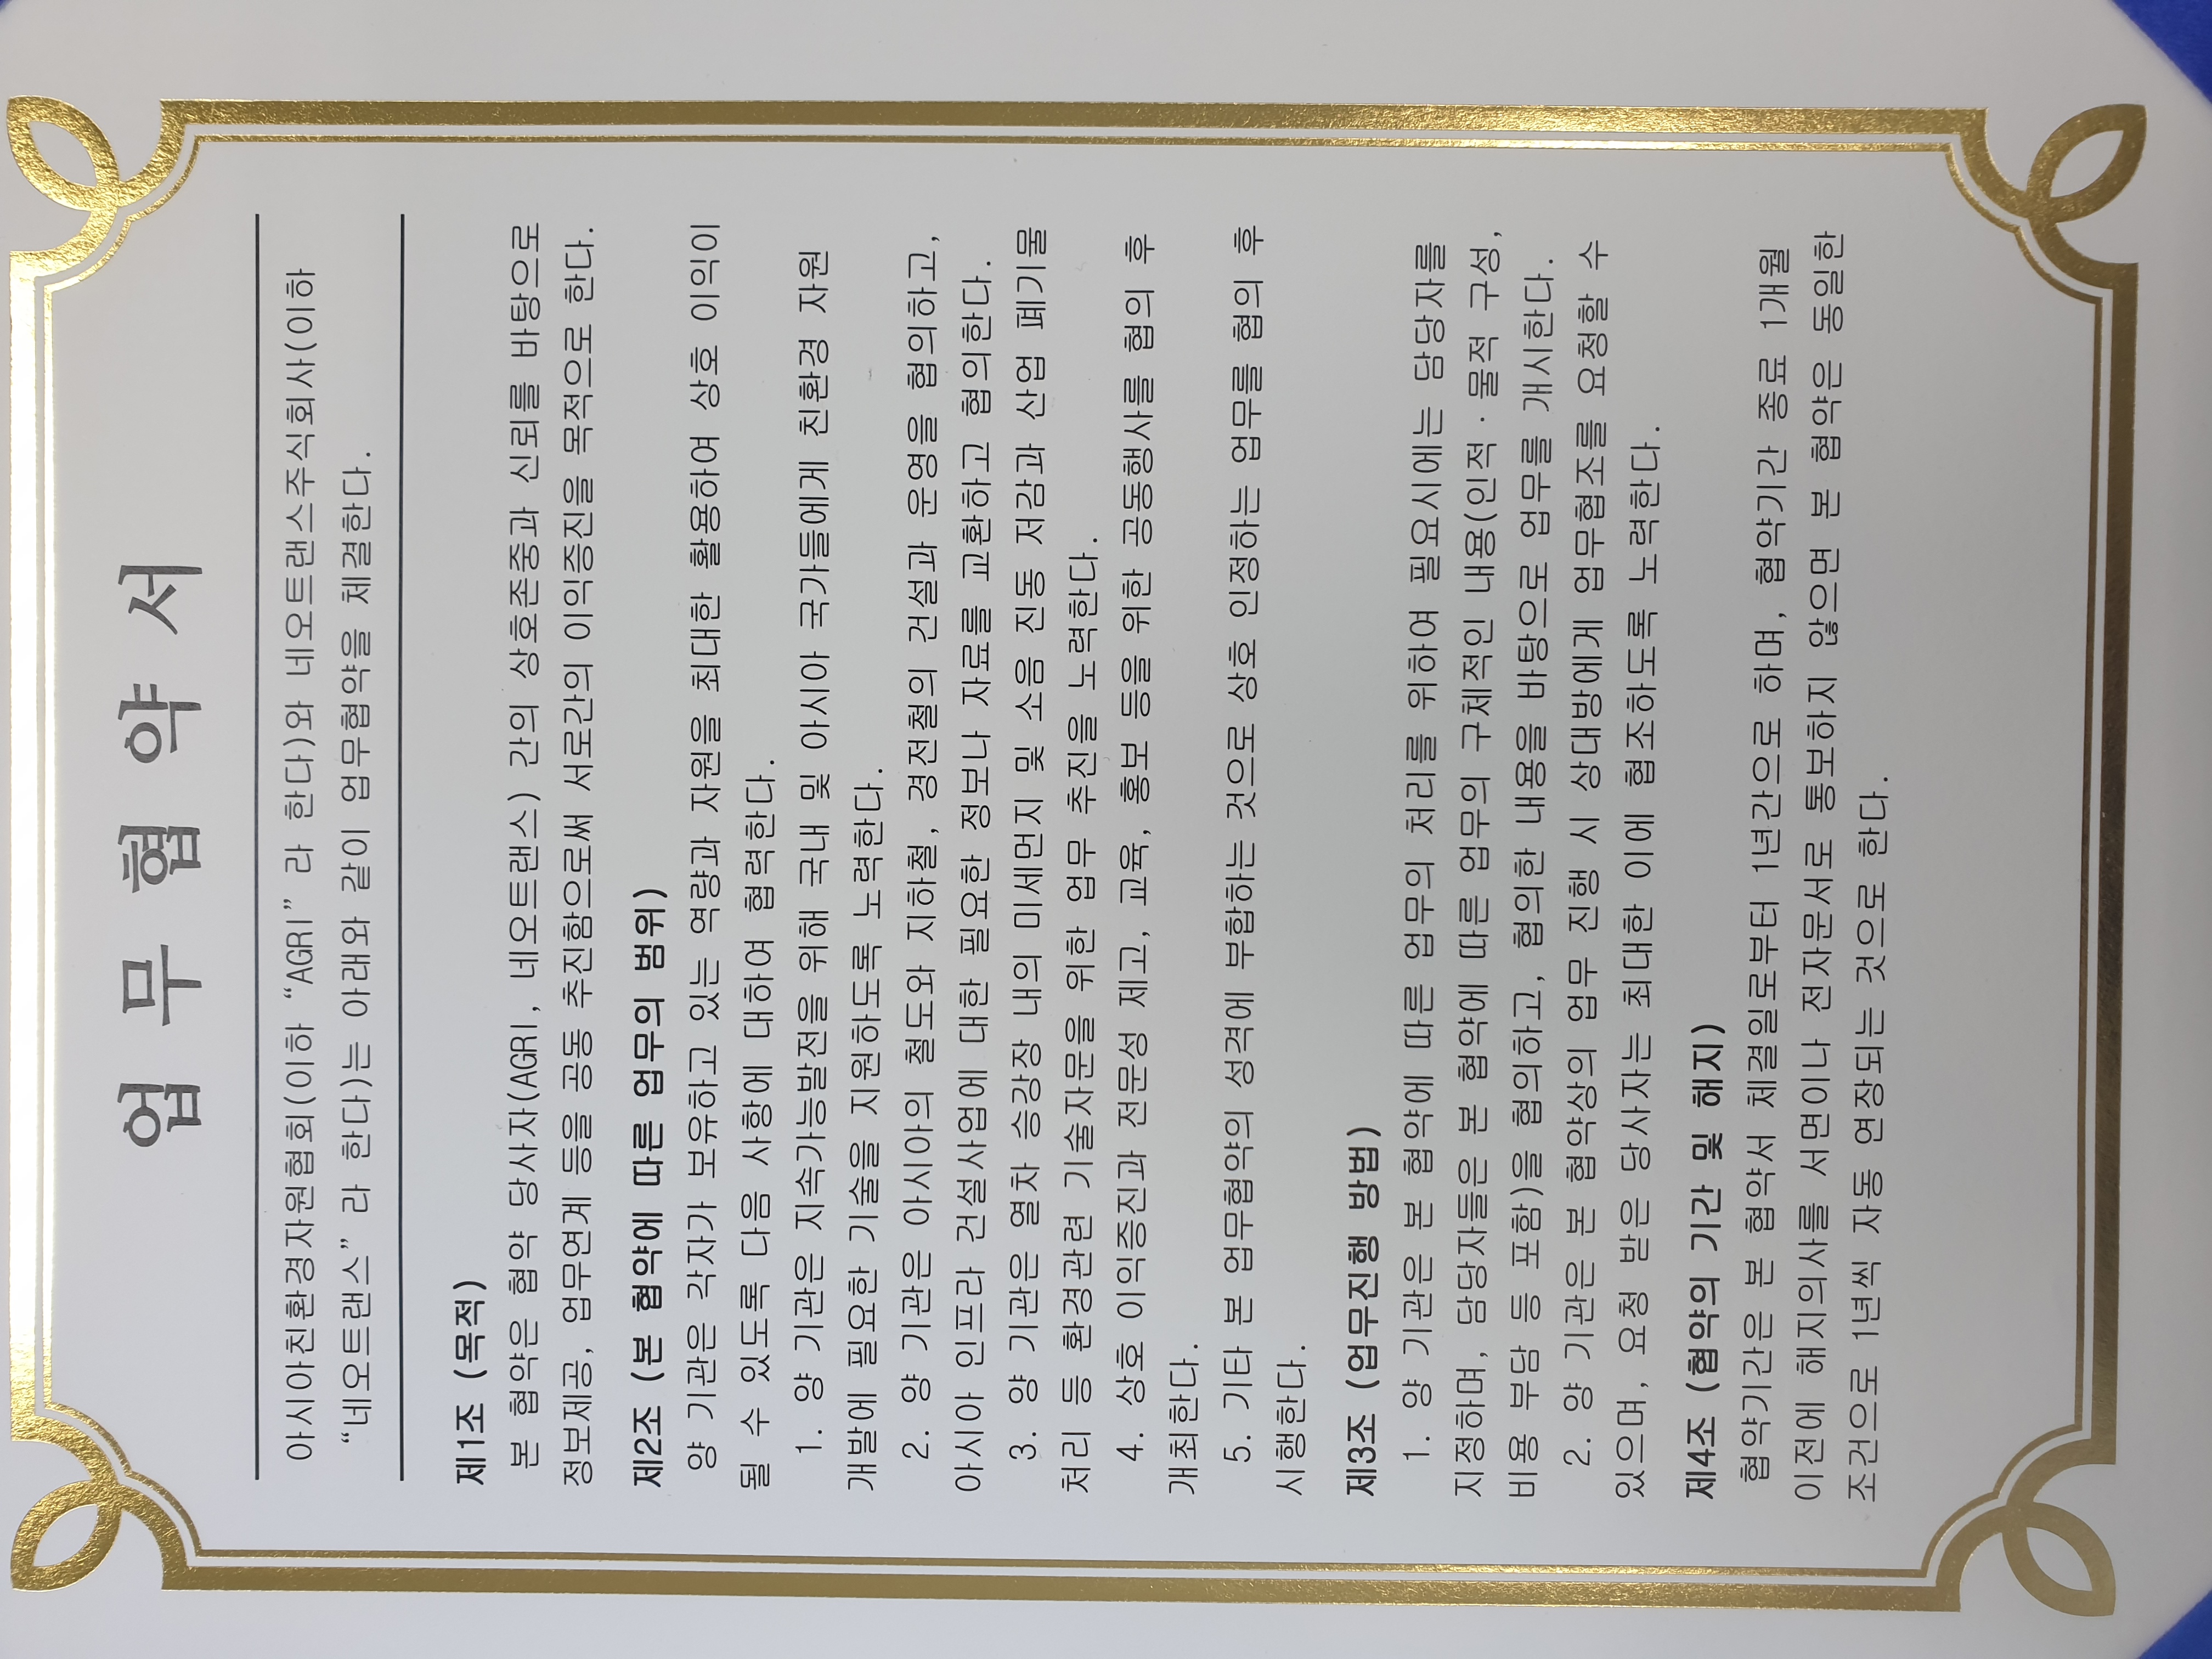 업 무 협 약 서
아시아친환경자원협회(이하 “AGRI” 라 한다)와 네오트랜스주식회사(이하
“네오트랜스” 라 한다)는 아래와 같이 업무협약을 체결한다.
제1조 (목적)
본 협약은 협약 당사자(AGRI, 네오트랜스) 간의 상호존중과 신뢰를 바탕으로
정보제공, 업무연계 등을 공동 추진함으로써 서로간의 이익증진을 목적으로 한다.
제2조 (본 협약에 따른 업무의 범위)
양 기관은 각자가 보유하고 있는 역량과 자원을 최대한 활용하여 상호 이익이
될 수 있도록 다음 사항에 대하여 협력한다.
1. 양 기관은 지속가능발전을 위해 국내 및 아시아 국가들에게 친환경 자원
개발에 필요한 기술을 지원하도록 노력한다.
2. 양 기관은 아시아의 철도와 지하철, 경전철의 건설과 운영을 협의하고,
아시아 인프라 건설사업에 대한 필요한 정보나 자료를 교환하고 협의한다.
3. 양 기관은 열차 승강장 내의 미세먼지 및 소음 진동 저감과 산업 폐기물
처리 등 환경관련 기술자문을 위한 업무 추진을 노력한다.
4. 상호 이익증진과 전문성 제고, 교육, 홍보 등을 위한 공동행사를 협의 후
개최한다.
5. 기타 본 업무협약의 성격에 부합하는 것으로 상호 인정하는 업무를 협의 후
시행한다.
제3조 (업무진행 방법)
1. 양 기관은 본 협약에 따른 업무의 처리를 위하여 필요시에는 담당자를
지정하며, 담당자들은 본 협약에 따른 업무의 구체적인 내용(인적·물적 구성,
비용 부담 등 포함)을 협의하고, 협의한 내용을 바탕으로 업무를 개시한다.
2. 양 기관은 본 협약상의 업무 진행 시 상대방에게 업무협조를 요청할 수
있으며, 요청 받은 당사자는 최대한 이에 협조하도록 노력한다.
제4조 (협약의 기간 및 해지)
협약기간은 본 협약서 체결일로부터 1년간으로 하며, 협약기간 종료 1개월
이전에 해지의사를 서면이나 전자문서로 통보하지 않으면 본 협약은 동일한
조건으로 1년씩 자동 연장되는 것으로 한다.